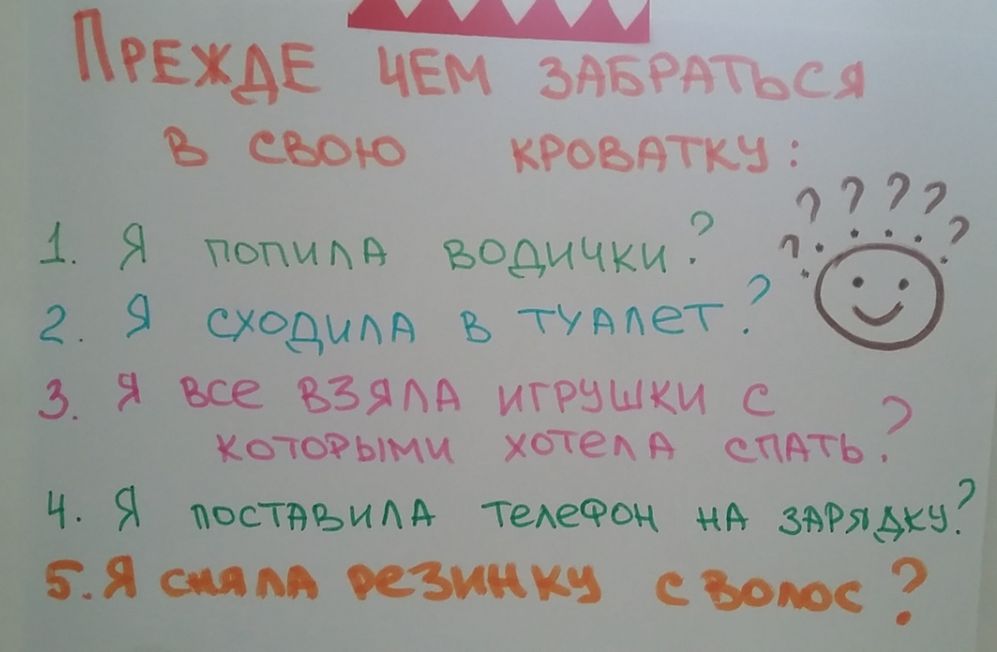 ПРЕЖДЕ ЧЕМ ЗАБРАТЬСЯ
В СВОЮ КРОВАТКУ:
1. Я ПОПИЛА ВОДИЧКИ?
2. Я СХОДИЛА В ТУАЛЕТ?
3. Я ВСЕ ВЗЯЛА ИГРУШКИ С
КОТОРЫМИ ХОТЕЛА СПАТЬ?
4. Я ПОСТАВИЛА ТЕЛЕФОН НА ЗАРЯДКУ?
5. Я СНЯЛА РЕЗИНКУ С ВОЛОС?
? ? ? ? ? ?